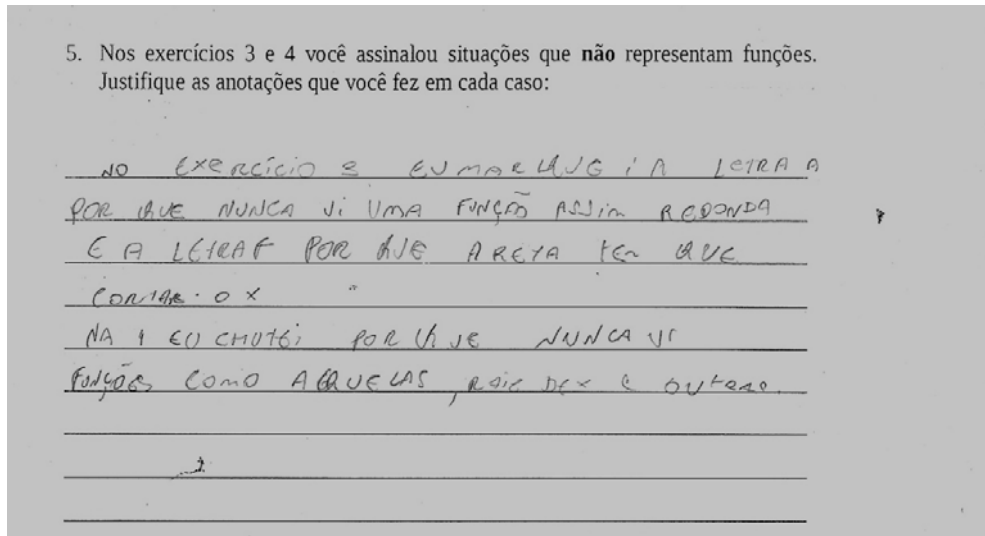 5. Nos exercícios 3 e 4 você assinalou situações que não representam funções.
Justifique as anotações que você fez em cada caso:
NO EXERCÍCIO 3 EU MARQUEI A LETRA A
POR QUE NUNCA VI UMA FUNÇÃO ASSIM REDONDA
E A LETRA F POR QUE A RETA TEM QUE
CORTAR O X
NA 4 EU CHUTEI POR QUE NUNCA VI
FUNÇÕES COMO AQUELAS, RAIZ DE X E